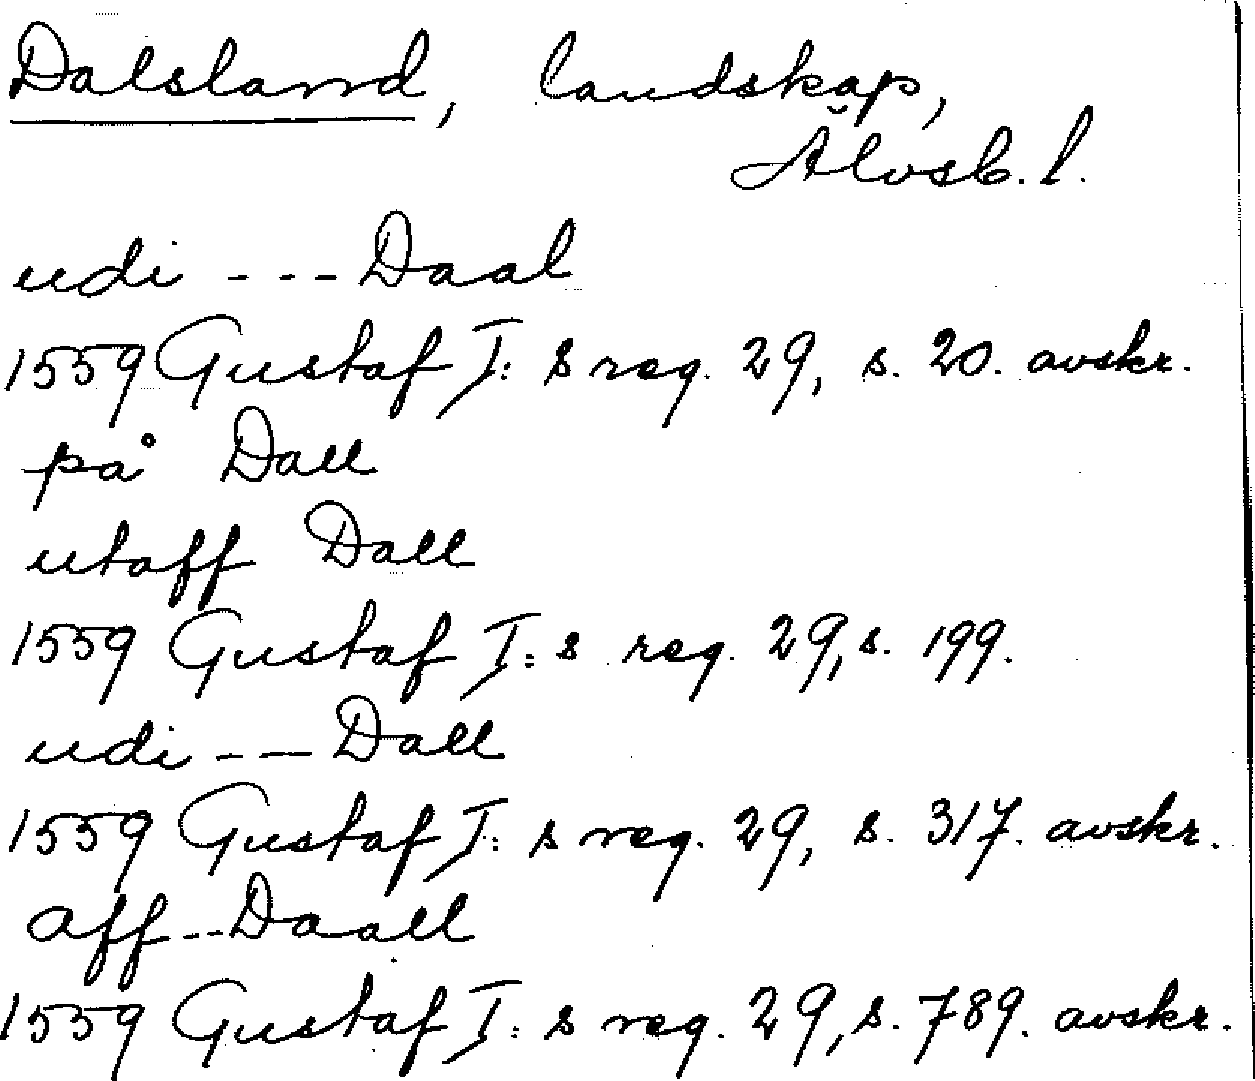 Dalsland, landskap,
Älvsb. l.
udi --- Daal
1559 Gustaf I:s reg. 29, s. 20. avskr.
på Dall
utaff Dall
1559 Gustaf I:s reg. 29, s. 199.
udi --- Dall
1559 Gustaf I:s reg. 29, s. 317. avskr.
aff -- Daall
1559 Gustaf I:s reg. 29, s. 789. avskr.